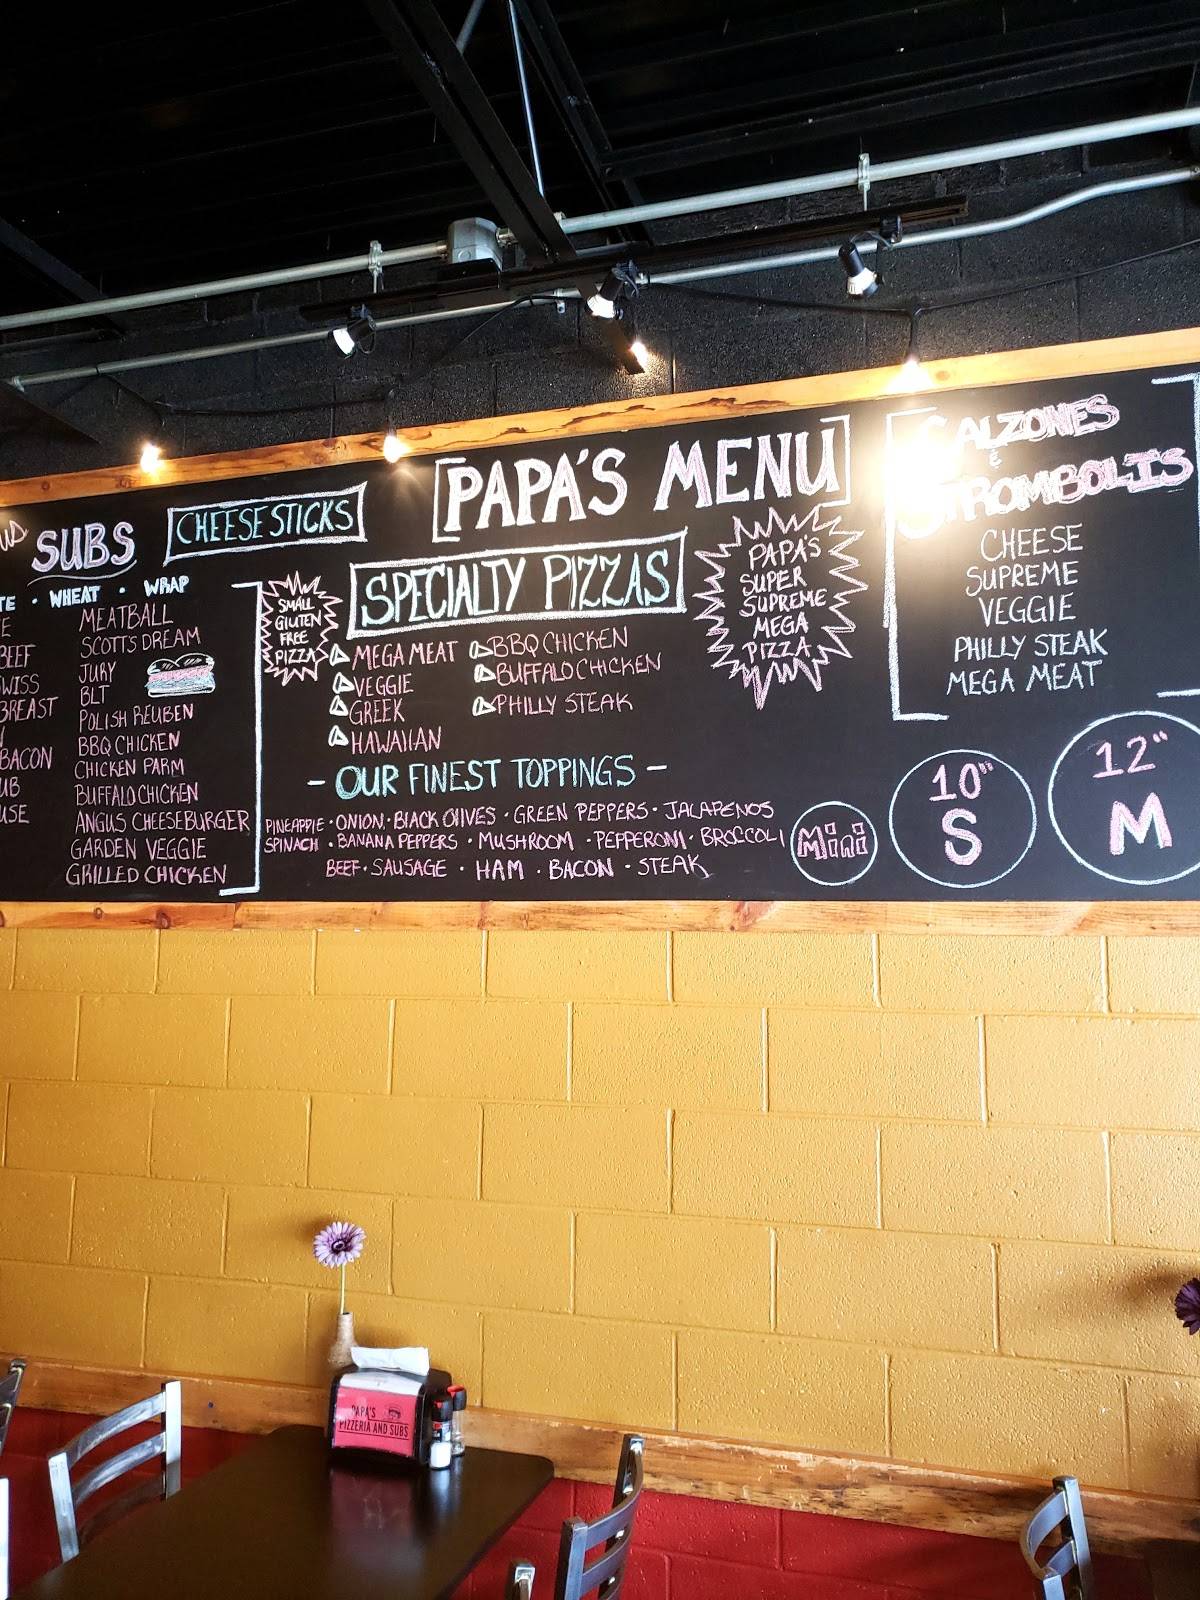 PAPA'S MENU
SUBS
WHEAT · WRAP
BEEF
BREAST
BACON
MEATBALL
SCOTT'S DREAM
JURY
BLT
POLISH REUBEN
BBQ CHICKEN
CHICKEN PARM
BUFFALO CHICKEN
ANGUS CHEESEBURGER
GARDEN VEGGIE
GRILLED CHICKEN
CHEESE STICKS
SMALL
GLUTEN
FREE
PIZZA
SPECIALTY PIZZAS
MEGA MEAT
VEGGIE
GREEK
HAWAIIAN
BBQ CHICKEN
BUFFALO CHICKEN
PHILLY STEAK
- OUR FINEST TOPPINGS -
PINEAPPLE · ONION · BLACK OLIVES · GREEN PEPPERS · JALAPENOS
SPINACH · BANANA PEPPERS · MUSHROOM · PEPPERONI · BROCCOLI
BEEF · SAUSAGE · HAM · BACON · STEAK
PAPA'S
SUPER
SUPREME
MEGA
PIZZA
CALZONES
&
STROMBOLIS
CHEESE
SUPREME
VEGGIE
PHILLY STEAK
MEGA MEAT
Mini
10"
S
12"
M
PAPA'S
PIZZERIA AND SUBS